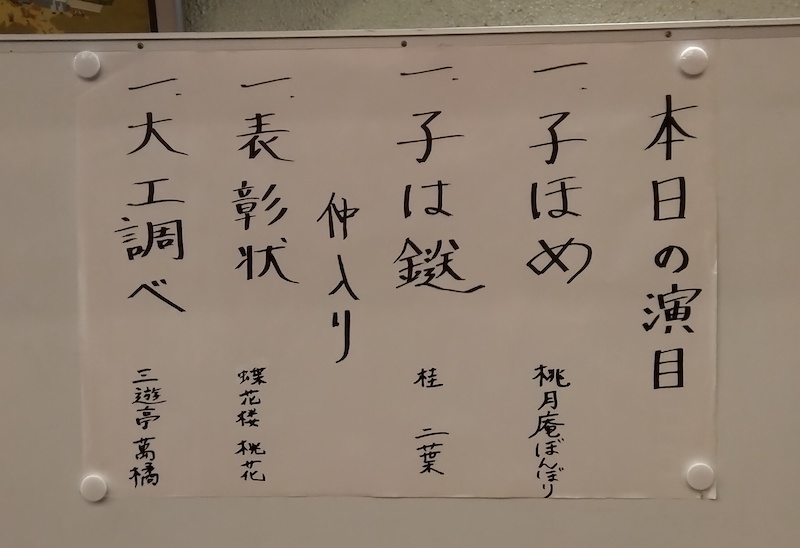 本日の演目
一、子ほめ 桃月庵ぼんぼり
一、子は鎹 桂 二葉
仲入り
一、表彰状 蝶花楼 桃花
一、大工調べ 三遊亭 萬橘